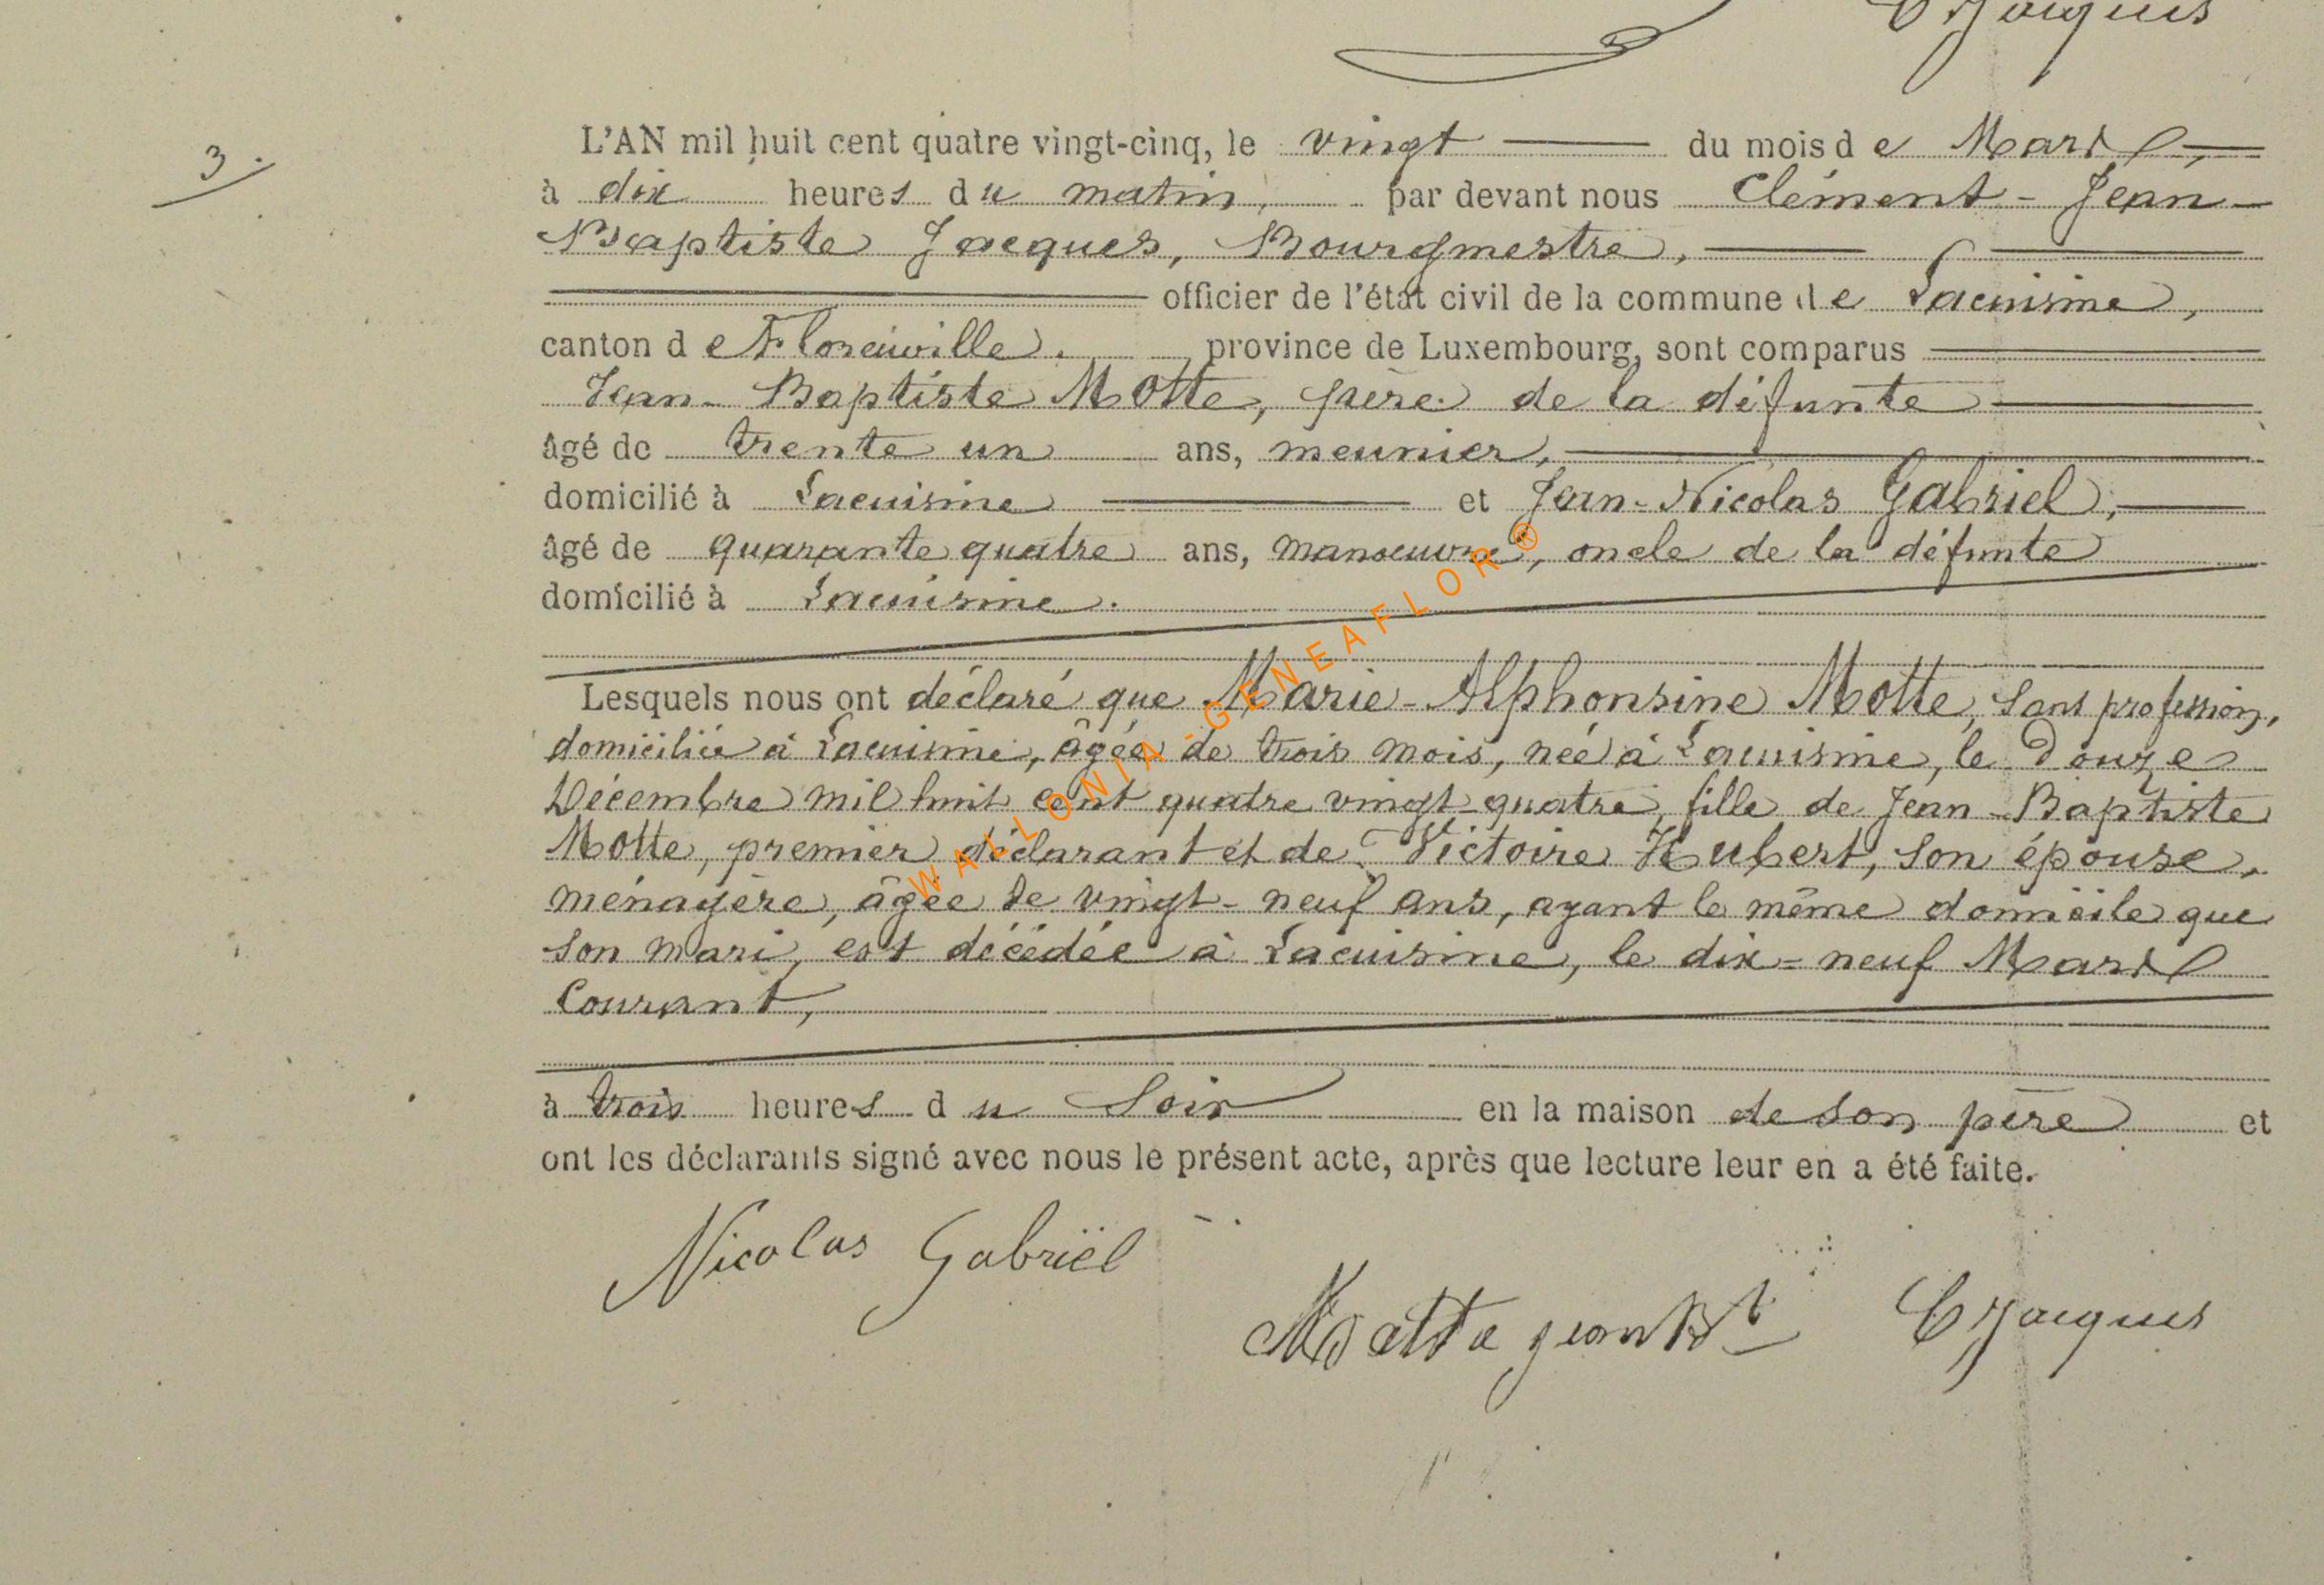 CJJacques
3.
L'AN mil huit cent quatre vingt-cinq, le vingt du mois de Mars,
à dix heures du matin, par devant nous Clément-Jean-
Baptiste Jacques, Bourgmestre,
officier de l'état civil de la commune de Lacuisine,
canton de Florenville. province de Luxembourg, sont comparus
Jean-Baptiste Motte, père de la défunte
âgé de trente un ans, meunier,
domicilié à Lacuisine et Jean-Nicolas Gabriel,
âgé de quarante quatre ans, manoeuvre, oncle de la défunte
domicilié à Lacuisine.
Lesquels nous ont déclaré que Marie-Alphonsine Motte, sans profession,
domiciliée à Lacuisine, âgée de trois mois, née à Lacuisine, le douze
Décembre mil huit cent quatre vingt-quatre, fille de Jean-Baptiste
Motte, premier déclarant et de Victoire Hubert, son épouse,
ménagère, âgée de vingt-neuf ans, ayant le même domicile que
son mari, est décédée à Lacuisine, le dix-neuf Mars
Courant,
à trois heures du Soir en la maison de son père et
ont les déclarants signé avec nous le présent acte, après que lecture leur en a été faite.
Nicolas Gabriël
Motte jean Bt
CJJacques
WALLONIA-GENEAFLOR®